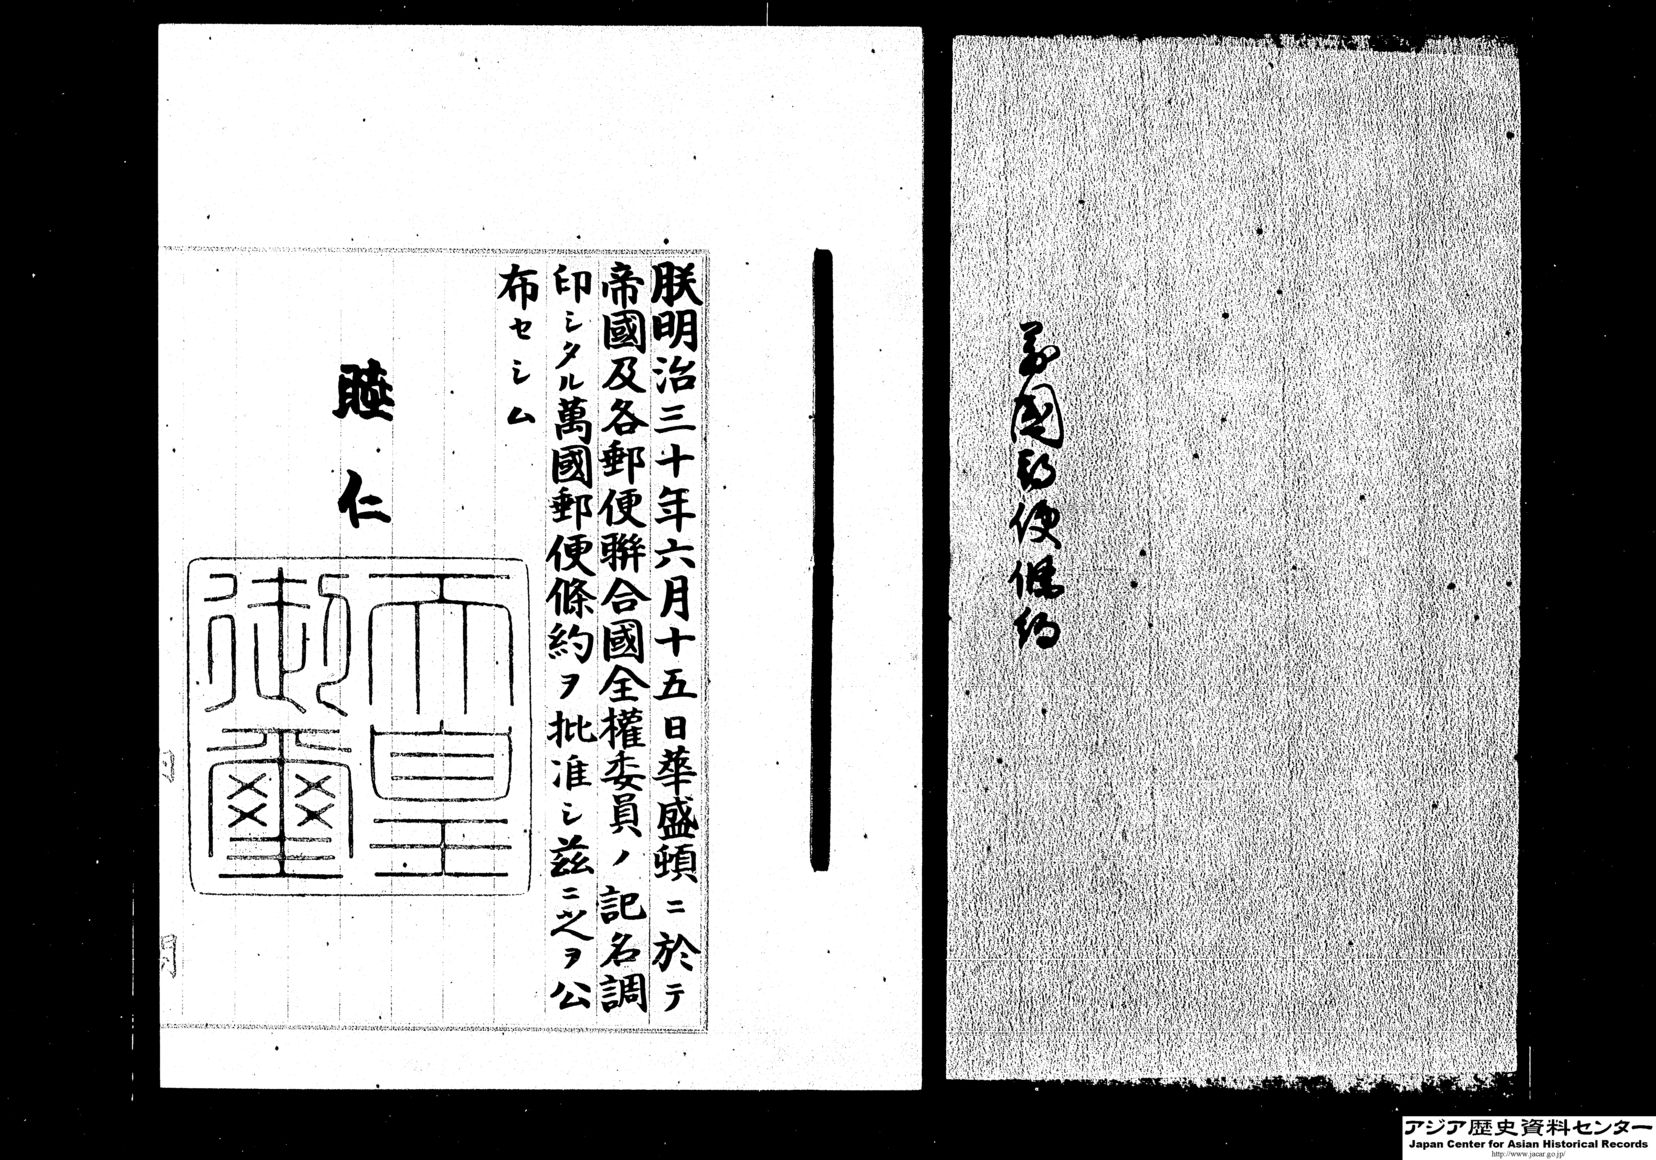 萬國郵便條約
朕明治三十年六月十五日華盛頓ニ於テ
帝國及各郵便聯合國全權委員ノ記名調
印シタル萬國郵便條約ヲ批准シ茲ニ之ヲ公
布セシム
睦仁
天皇
御璽
アジア歴史資料センター
Japan Center for Asian Historical Records
http://www.jacar.go.jp/